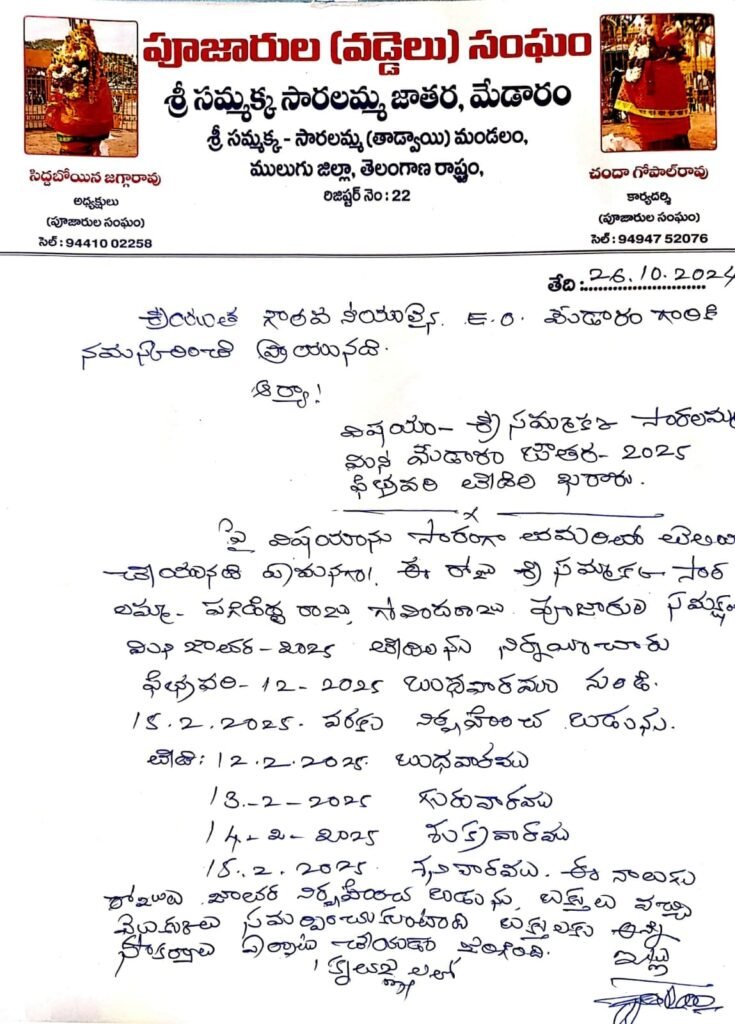 పూజారుల (వడ్డెలు) సంఘం
శ్రీ సమ్మక్క సారలమ్మ జాతర, మేడారం
శ్రీ సమ్మక్క - సారలమ్మ (తాడ్వాయి) మండలం,
ములుగు జిల్లా, తెలంగాణ రాష్ట్రం,
రిజిష్టర్ నెం : 22
సిద్దబోయిన జగ్గారావు
అధ్యక్షులు
(పూజారుల సంఘం)
సెల్ : 94410 02258
చందా గోపాల్‌రావు
కార్యదర్శి
(పూజారుల సంఘం)
సెల్ : 94947 52076
తేది : 26.10.2024
శ్రీయుత గౌరవ నీయులైన E.O. మేడారం గారికి
నమస్కరించి వ్రాయునది.
ఆర్యా!
విషయం- శ్రీ సమ్మక్క సారలమ్మ
మిని మేడారం జాతర- 2025
ఫిబ్రవరి తేదీల ఖరారు.
పై విషయాను సారంగా తమరికి తెలియ
చేయునది ఏమనగా! ఈ రోజు శ్రీ సమ్మక్క సార
లమ్మ- పగిడిద్ద రాజు, గోవిందరాజు పూజారుల సమక్షం
మిని జాతర-2025 తేదీలను నిర్ణయించారు
ఫిబ్రవరి- 12- 2025 బుధవారము నుండి.
15.2.2025. వరకు నిర్వహించ బడును.
తేది: 12.2.2025. బుధవారము
13-2-2025 గురువారము
14-2-2025 శుక్రవారము
15.2.2025. శనివారము. ఈ నాలుగు
రోజులు జాతర నిర్వహించ బడును, భక్తులు వచ్చి
మొక్కులు సమర్పించుకుంటారు భక్తులకు అన్ని
సౌకర్యాలు ఏర్పాటు చేయడం జరిగింది.
ఇట్లు
కృతజ్ఞతలతో